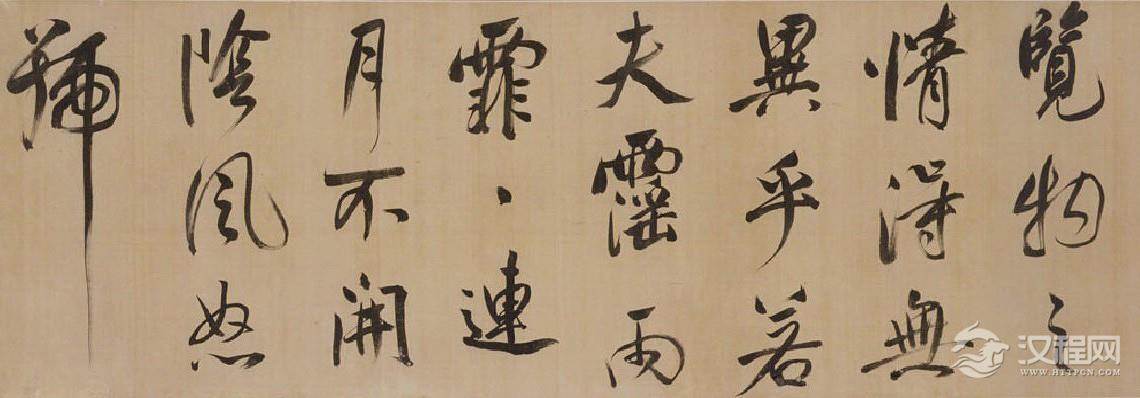 覽物之
情得無
異乎若
夫霪雨
霏、連
月不開
陰風怒
號
汉程网
WWW.HTTPCN.COM